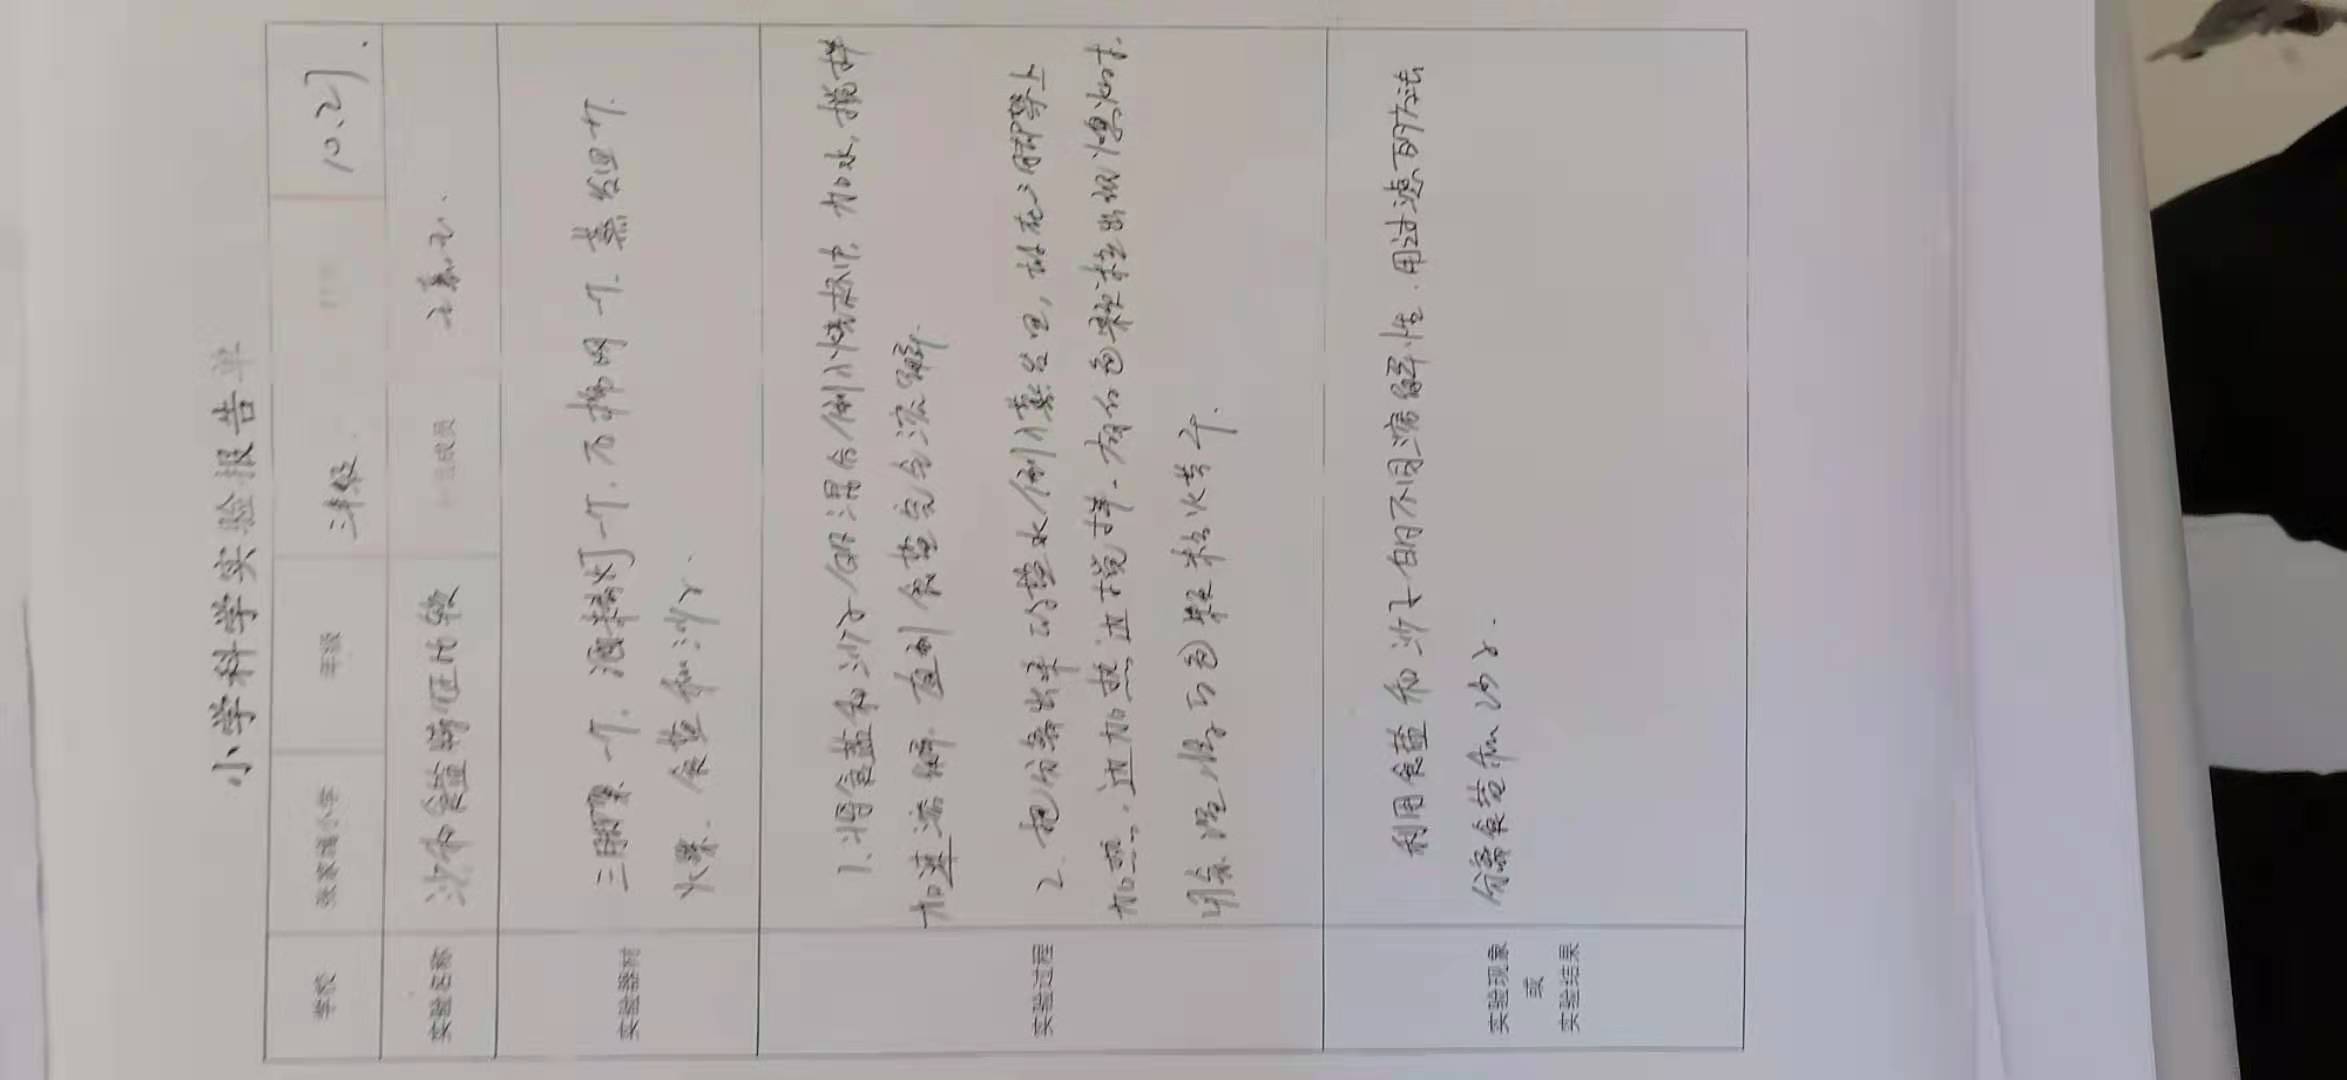 小学科学实验报告单
学校 张家疃小学 年级 三年级 10.27.
实验名称 沙和食盐特征比较 小组成员
实验器材 三脚架一个. 酒精灯一个. 石棉网一个. 蒸发皿一个.
火柴. 食盐和沙子.
实验过程 1.将食盐和沙子的混合倒入烧杯中, 加水, 搅拌
加速溶解. 直到食盐完全溶解.
2. 把分离出来的盐水倒入蒸发皿, 放在三脚架上
加热. 边加热边搅拌. 有白色颗粒出现熄灭
利用余温 白色颗粒
实验现象
或
实验结果 利用食盐和沙子的不同溶解性. 用过滤的方法
分离食盐和沙子.